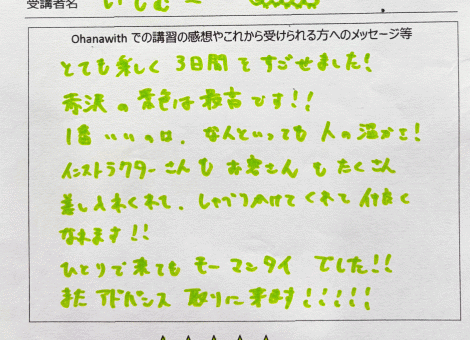 受講者名 いしむー
Ohanawith での講習の感想やこれから受けられる方へのメッセージ等
とても楽しく 3日間をすごせました!
秀沢の景色は最高です!!
1番いいのは、なんといっても人の温かさ!
インストラクターさんもお客さんもたくさん
差し入れくれて、しゃべりかけてくれて仲良く
なれます!!
ひとりで来てもモーマンタイでした!!
またアドバンス取りに来ます!!!!!